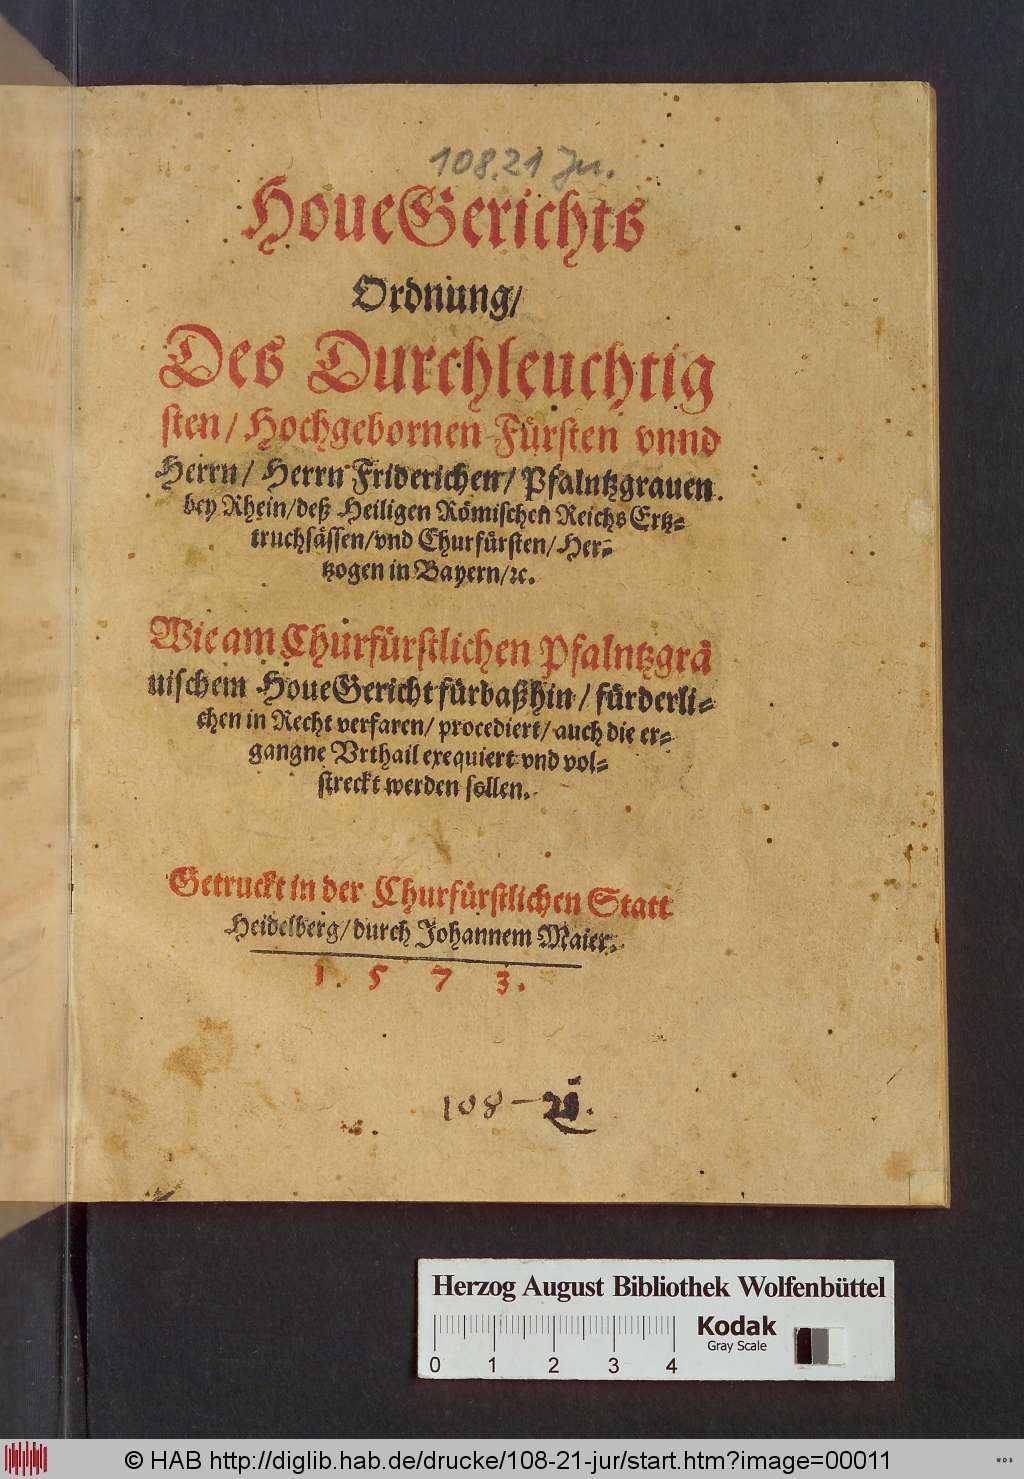 108.21 Ju.
HoueGerichts
Ordnung/
Des Durchleuchtig
sten/ Hochgebornen Fürsten vnnd
Herrn/ Herrn Friderichen/ Pfalntzgrauen
bey Rhein/deß Heiligen Römischen Reichs Ertz⸗
truchsässen/vnd Churfürsten/Her⸗
tzogen in Bayern/ꝛc.
Wie am Churfürstlichen Pfalntzgrä
uischem HoueGericht fürbaßhin/ fürderli⸗
chen in Recht verfaren/ procediert/ auch die er⸗
gangne Vrthail exequiert vnd vol⸗
streckt werden sollen.
Getruckt in der Churfürstlichen Statt
Heidelberg/durch Johannem Maier.
1 5 7 3.
108–21.
Herzog August Bibliothek Wolfenbüttel
0 1 2 3 4
Kodak
Gray Scale
© HAB http://diglib.hab.de/drucke/108-21-jur/start.htm?image=00011